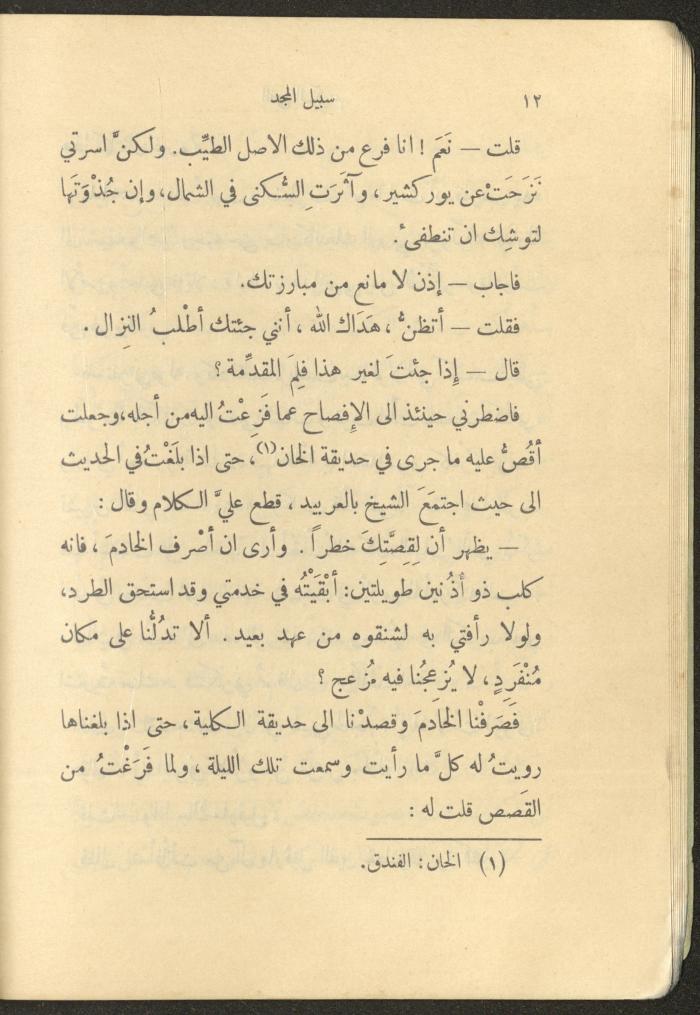 ١٢ سبيل المجد
قلت — نَعَم ! انا فرع من ذلك الاصل الطيِّب. ولكنَّ اسرتي
نَزَحَتْ عن يوركشير، وآثَرَتِ السُّكنى في الشمال، وإن جُذْوَتَها
لتوشِك ان تنطفىءَ.
فاجاب — إذن لا مانع من مبارزتك.
فقلت — أتظنُّ ، هَدَاك الله ، أنني جئتك أطْلبُ النِزال .
قال — إِذا جئتَ لغير هذا فلِمَ المقدِّمة ؟
فاضطرني حينئذ الى الإِفصاح عما فَزِعْتُ اليه من أجله، وجعلت
أقُصُّ عليه ما جرى في حديقة الخان(١)، حتى اذا بلَغْتُ في الحديث
الى حيث اجتمَعَ الشيخ بالعربيد ، قطع عليَّ الكلام وقال :
— يظهر أن لِقِصَّتِكَ خطراً . وأرى ان أصْرف الخادمَ ، فانه
كلب ذو أذُنين طويلتين: أبْقَيْتُه في خدمتي وقد استحق الطرد،
ولولا رأفتي به لشنقوه من عهد بعيد . ألا تدُلُّنا على مكان
مُنْفَرِدٍ ، لا يُزعِجُنا فيه مُزعج ؟
فَصَرفْنا الخادمَ وقصدْنا الى حديقة الكلية ، حتى اذا بلغناها
رويتُ له كلَّ ما رأيت وسمعت تلك الليلة ، ولما فَرَغْتُ من
القَصص قلت له :
(١) الخان : الفندق.